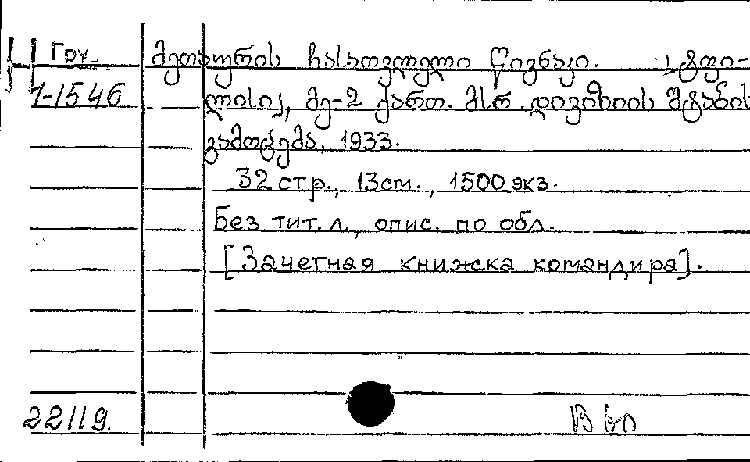 Гру. მეთაურის ჩასათვლელი წიგნაკი. „ტფი-
1-1546 ლისი", მე-2 ქართ. მსრ. დივიზიის შტაბის
გამოცემა, 1933.
32 стр., 13 cm., 1500 экз.
Без тит. л., опис. по обл.
[Зачетная книжска командира].
22119